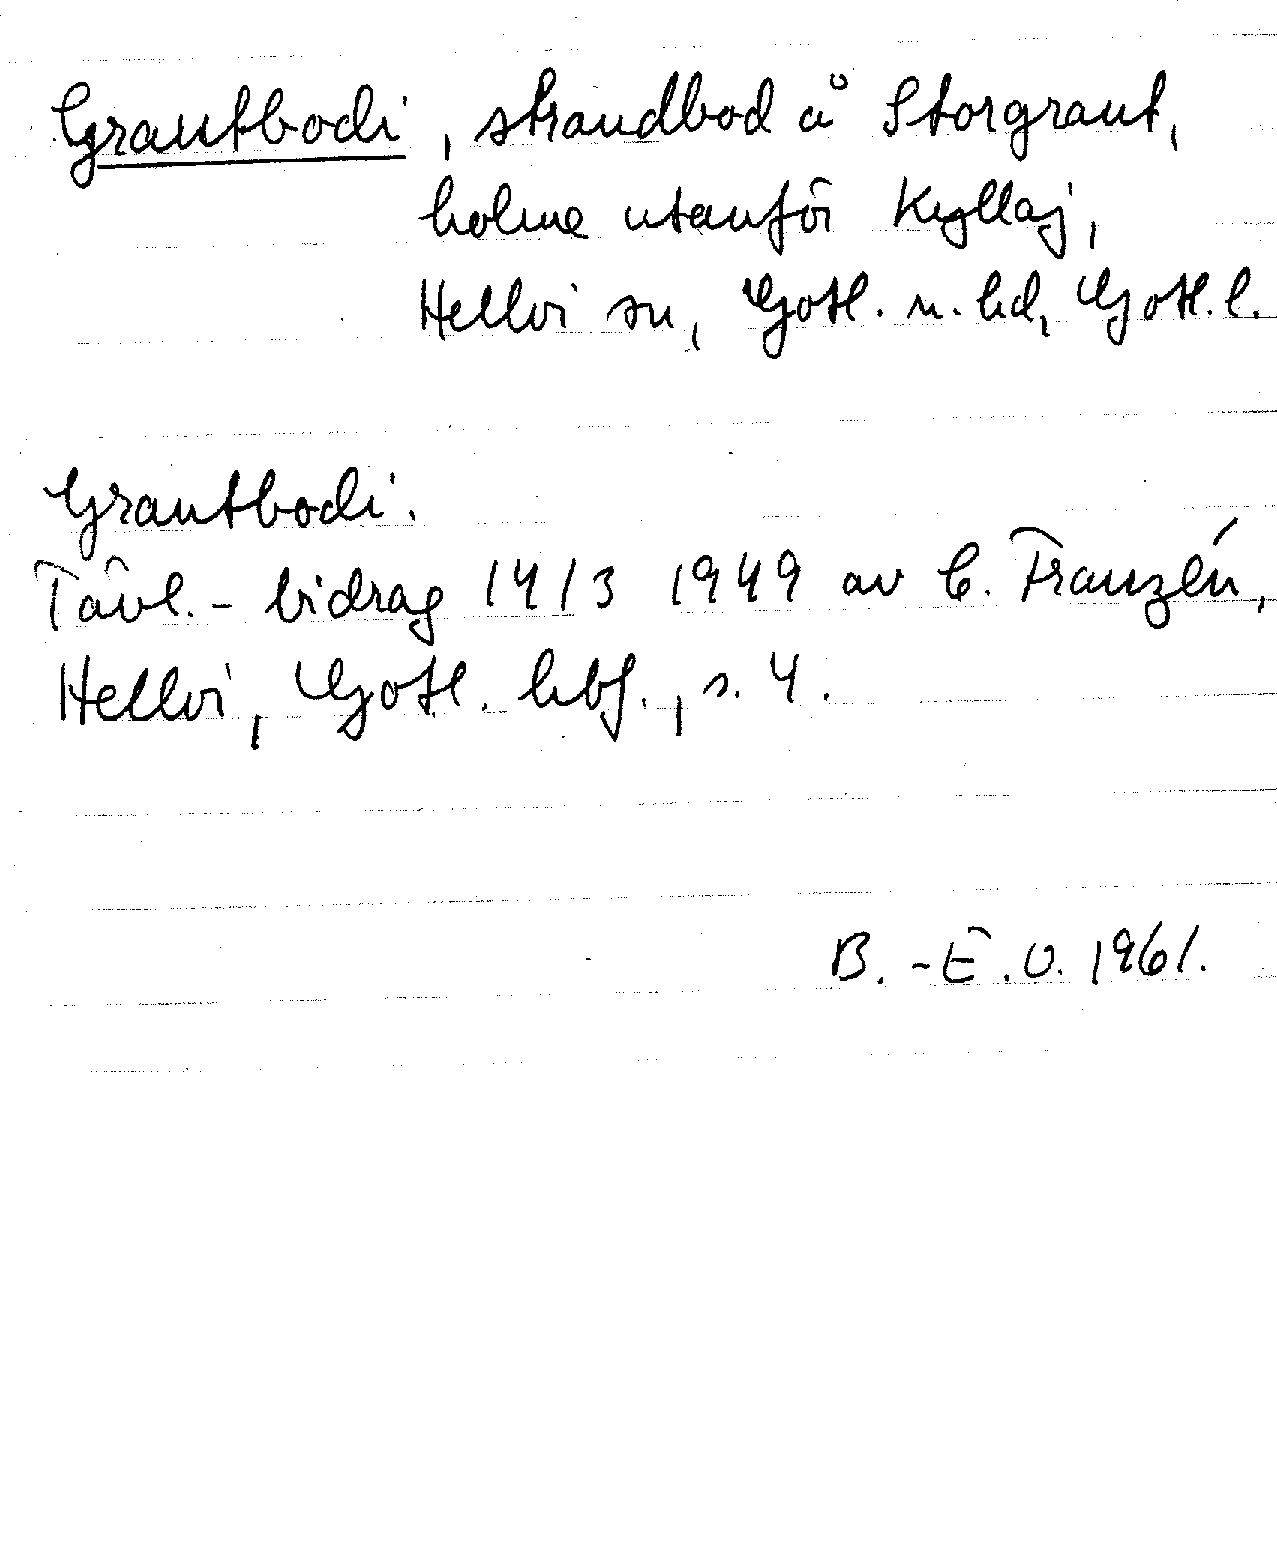 Grautbodi, strandbod å Storgraut,
holme utanför Kyllaj,
Hellvi sn, Gotl. n. hd, Gotl. l.
Grautbodi.
Tävl.-bidrag 14/3 1949 av C. Franzén,
Hellvi, Gotl. hbf., s. 4.
B.-E.O. 1961.